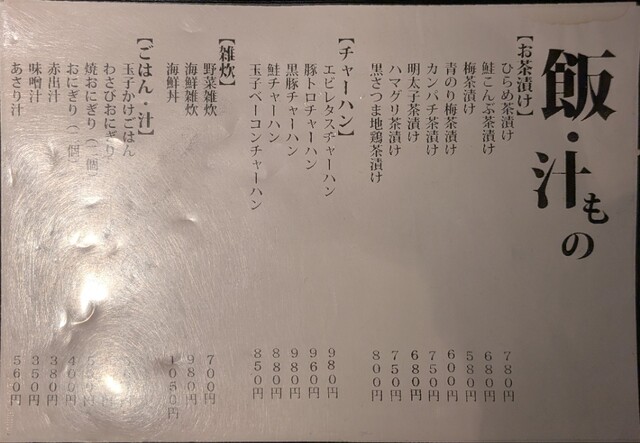 飯・汁もの
【お茶漬け】
ひらめ茶漬け 780円
鮭こんぶ茶漬け 680円
梅茶漬け 580円
青のり梅茶漬け 600円
カンパチ茶漬け 750円
明太子茶漬け 680円
ハマグリ茶漬け 750円
黒さつま地鶏茶漬け 800円
【チャーハン】
エビレタスチャーハン 980円
豚トロチャーハン 960円
黒豚チャーハン 980円
鮭チャーハン 880円
玉子ベーコンチャーハン 850円
【雑炊】
野菜雑炊 700円
海鮮雑炊 980円
海鮮丼 1050円
【ごはん・汁】
玉子かけごはん
わさびおにぎり
焼おにぎり
おにぎり 400円
赤出汁 380円
味噌汁 350円
あさり汁 560円